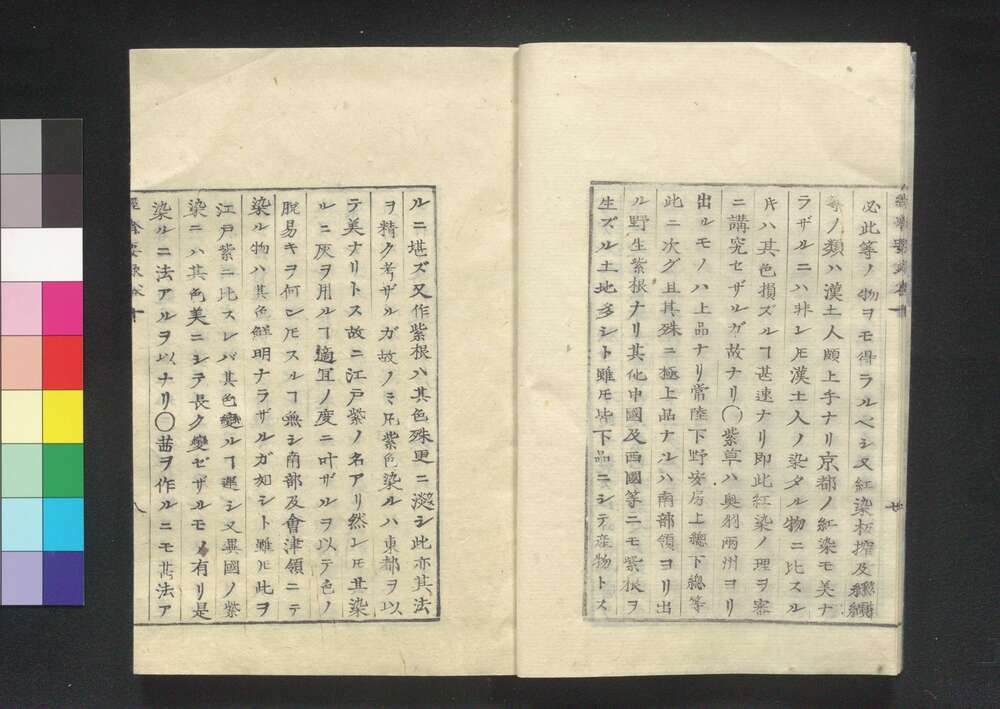 必此等ノ物ヲモ得ラルベシ又紅染板搾及纈纐
等ノ類ハ漢土人頗上手ナリ京都ノ紅染モ美ナ
ラザルニハ非レ𪜈漢土人ノ染タル物ニ比スル
𪜈ハ其色損ズルヿ甚速ナリ即此紅染ノ理ヲ密
ニ講究セザルガ故ナリ〇紫草ハ奥羽兩州ヨリ
出ルモノハ上品ナリ常陸下野安房上總下總等
此ニ次グ且其殊ニ極上品ナルハ南部領ヨリ出
ル野生紫根ナリ其他中國及西國等ニモ紫根ヲ
生ズル土地多シト雖モ皆下品ニシテ産物トス
ルニ堪ズ又作紫根ハ其色殊更ニ淡シ此亦其法
ヲ精ク考ザルガ故ノミ凡紫色染ルハ東都ヲ以
テ美ナリトス故ニ江戸紫ノ名アリ然レ𪜈其染
ルニ灰ヲ用ルヿ適宜ノ度ニ叶ザルヲ以テ色ノ
脱易キヲ何ン𪜈スルヿ無シ南部及會津領ニテ
染ル物ハ其色鮮明ナラザルガ如シト雖𪜈此ヲ
江戸紫ニ比スレバ其色變ルヿ遲シ又異國ノ紫
染ニハ其色美ニシテ長ク變ゼザルモノ有リ是
染ルニ法アルヲ以ナリ〇茜ヲ作ルニモ其法ア
八